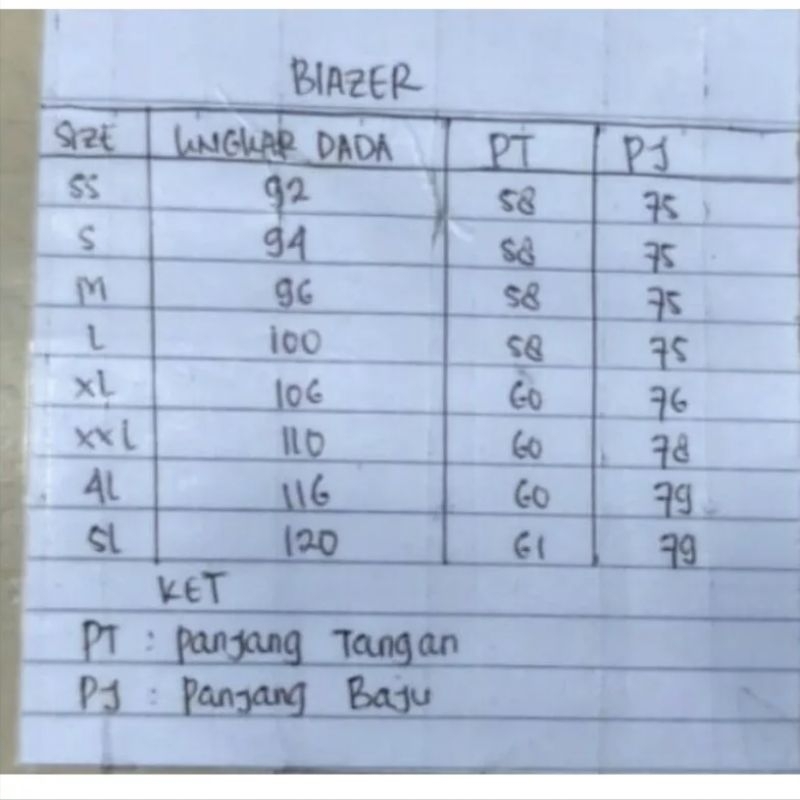 BLAZER
SIZE LINGKAR DADA PT PJ
SS 92 58 75
S 94 58 75
M 96 58 75
L 100 58 75
XL 106 60 76
XXL 110 60 78
4L 116 60 79
5L 120 61 79
KET
PT : Panjang Tangan
PJ : Panjang Baju